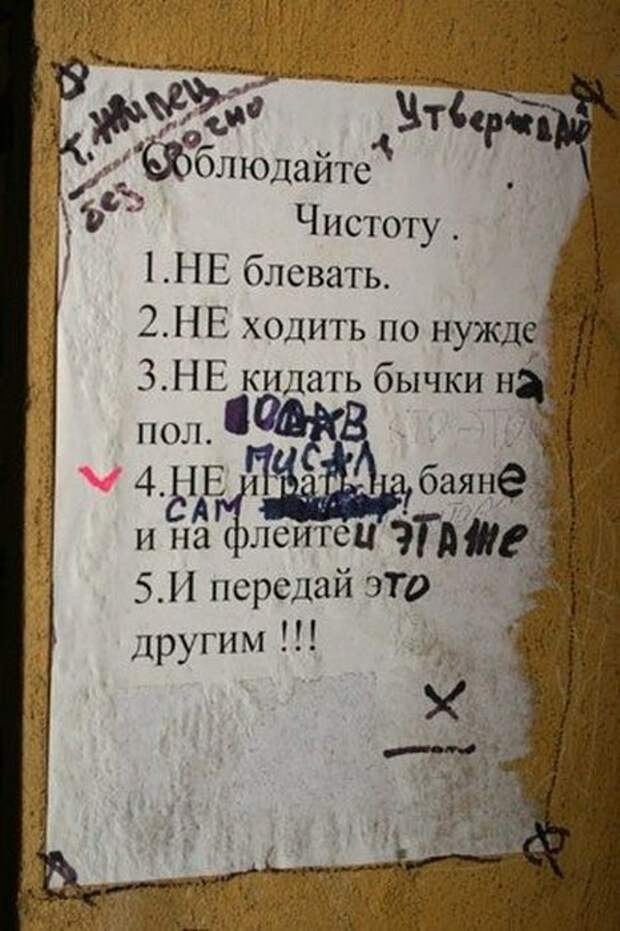 т. Жилец
без срочно
Утверждаю
Соблюдайте
Чистоту .
1.НЕ блевать.
2.НЕ ходить по нужде
3.НЕ кидать бычки на
пол.
писал
4.НЕ играть на баяне
сам !
и на флейте и этаже
5.И передай это
другим !!!
X